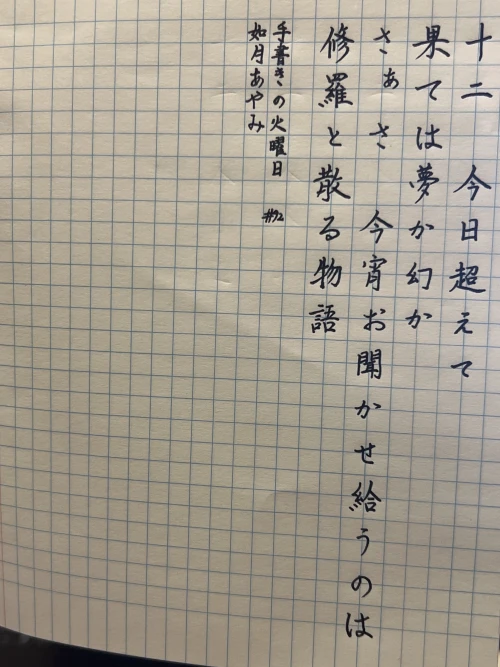 十二 今日超えて
果ては夢か幻か
さぁさ 今宵お聞かせ給うのは
修羅と散る物語
手書きの火曜日 #92
如月あやみ